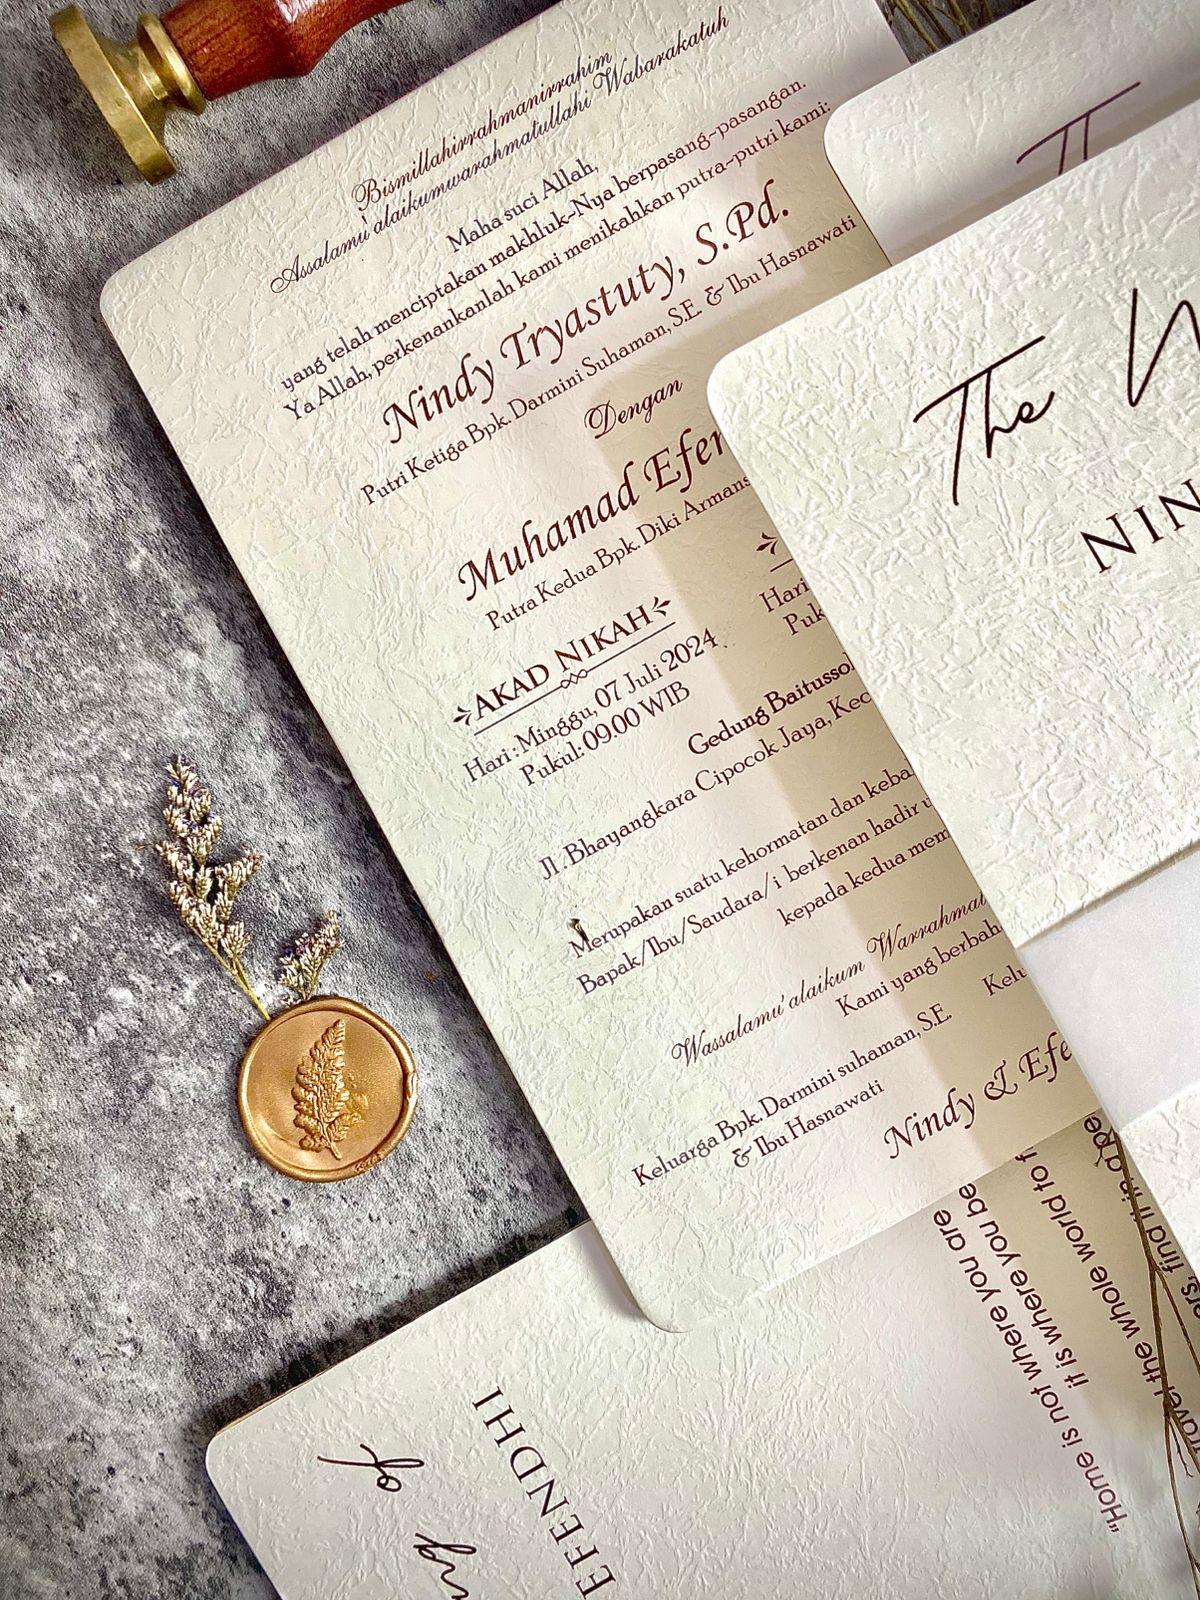 Bismillahirrahmanirrahim
Assalamu'alaikumwarahmatullahi Wabarakatuh
Maha suci Allah,
yang telah menciptakan makhluk~Nya berpasang~pasangan.
Ya Allah, perkenankanlah kami menikahkan putra~putri kami:
Nindy Tryastuty, S.Pd.
Putri Ketiga Bpk. Darmini Suhaman, S.E. & Ibu Hasnawati
Dengan
Muhamad Efen
Putra Kedua Bpk. Diki Armans
AKAD NIKAH
Hari : Minggu, 07 Juli 2024
Pukul: 09.00 WIB
Hari
Puk
Gedung Baitussol
Jl. Bhayangkara Cipocok Jaya, Kec
Merupakan suatu kehormatan dan keba
Bapak/Ibu/Saudara/i berkenan hadir u
kepada kedua mem
Wassalamu'alaikum Warrahmat
Kami yang berbah
Keluarga Bpk. Darmini suhaman, S.E.
& Ibu Hasnawati
Kelu
Nindy & Efe
The W
NIN
of
ng
EFENDHI
"Home is not where you are
it is where you be
ravel the whole world to f
ers, find it in a pe